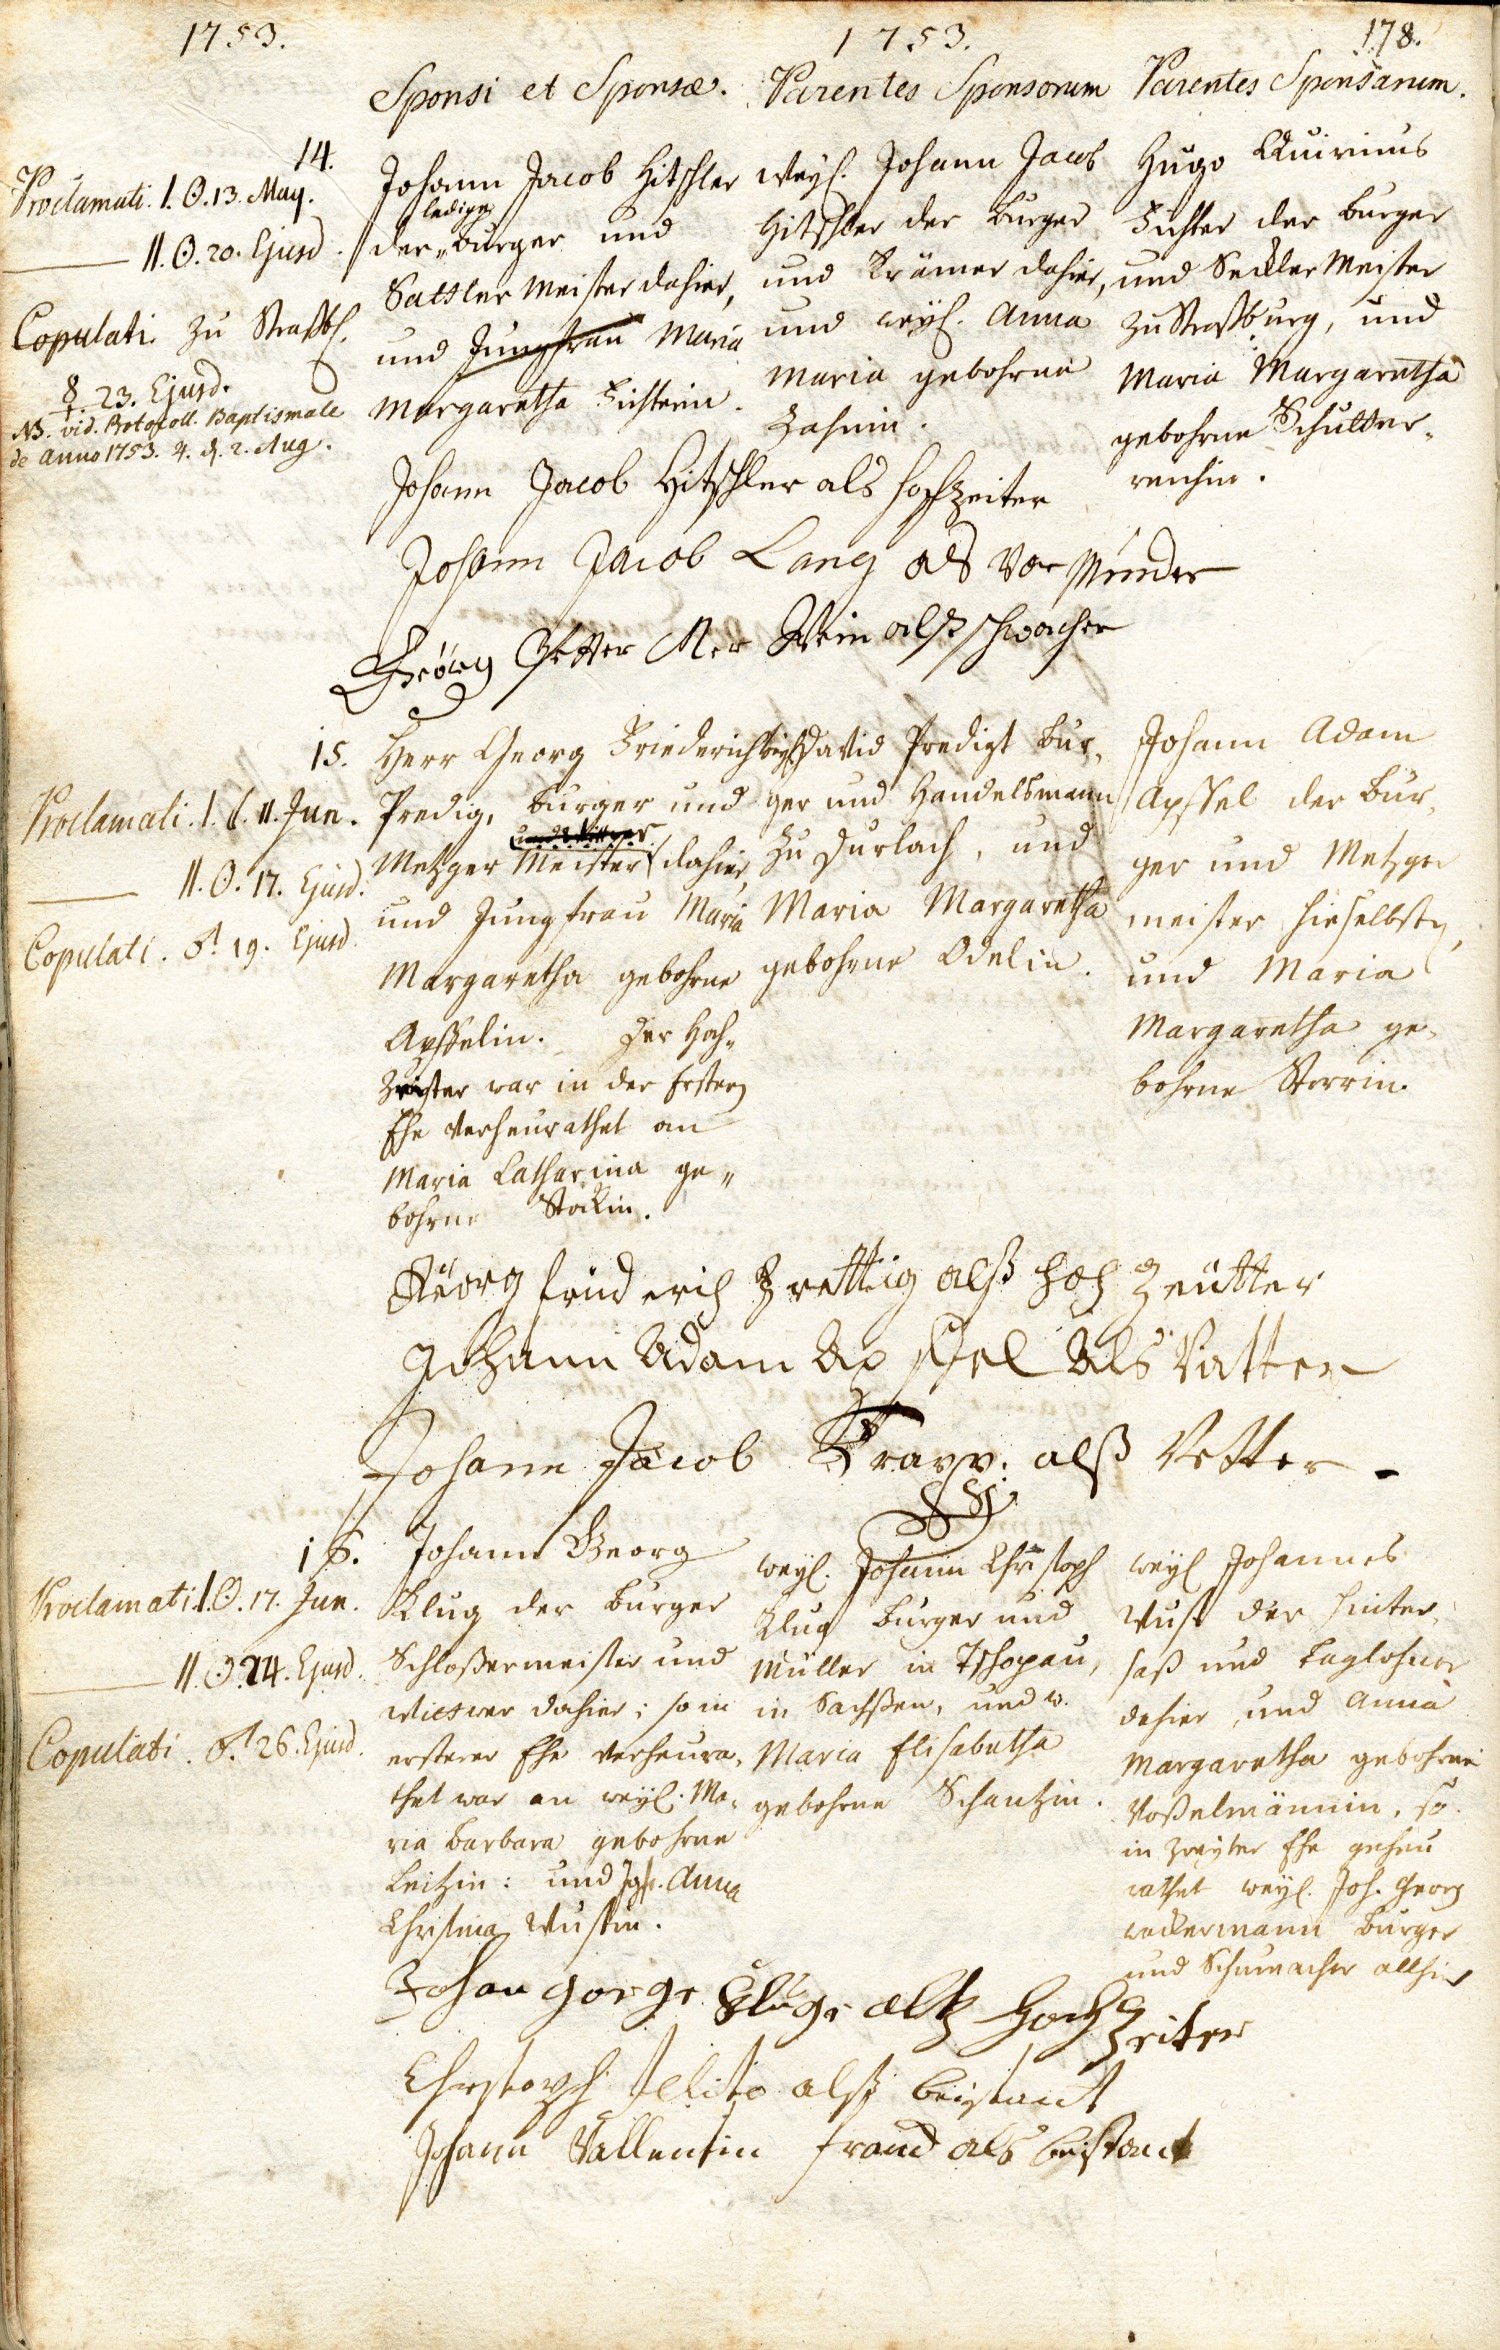 1753.
1753.
178.
Sponsi et Sponsæ.
Parentes Sponsorum
Parentes Sponsarum.
14.
Proclamati. I. ☉. 13. May.
II. ☉. 20. Ejusd.
Copulati. zu Straßb.
☿. 23. Ejusd.
NB. vid. Protocoll. Baptismale
de anno 1753. 4. d. 2. Aug.
Johann Jacob Hitschler
ledige
der burger und
Sattler Meister dahier,
und Jungfrau Maria
Margaretha Fichterin.
weyl. Johann Jacob
Hitschler der burger
und Krämer dahier,
und weyl. Anna
Maria gebohrne
Zahnin.
Hugo Quirinus
Fichter der burger
und Seckler Meister
zu Straßburg, und
Maria Margaretha
gebohrne Schulter„
reichin.
Johann Jacob Hitschler als hochzeiter
Johann Jacob Lang als Vor Münder
Geörg Petter Wein alß schwacher
15.
Proclamati. I. 11. Jun.
II. ☉. 17. Ejusd.
Copulati. ♂. 19. Ejusd.
Herr Georg Friederich
Predig, burger und
und Wittwer
Metzger Meister dahier,
und Jungfrau Maria
Margaretha gebohrne
Apffelin. Der Hoch„
Zeiter war in der Ersten
Ehe verheurathet an
Maria Catharina ge„
bohrne Stöckin.
David Predigt bur„
ger und Handelsmann
zu Durlach, und
Maria Margaretha
gebohrne Odelin.
Johann Adam
Apffel der bur„
ger und Metzger
meister hieselbsten,
und Maria
Margaretha ge„
bohrne Storrin.
Geörg friederich Brettig alß hoch Zeütter
Johann Adam Apffel Als Vatter
Johann Jacob Trapp. alß Vetter.
16.
Proclamati I. ☉. 17. Jun.
II. ☉. 24. Ejusd.
Copulati. ♂. 26. Ejusd.
Johann Georg
Klug der burger
Schloßermeister und
Wittwer dahier; so in
ersterer Ehe verheura„
thet war an weyl. Ma„
ria Barbara gebohrne
Leitzin: und Jgfr. Anna
Christina Wustin.
weyl. Johann Christoph
Klug burger und
Müller in Tschopau,
in Sachßen, und w.
Maria Elisabetha
gebohrne Schantzin.
weyl Johannes
Wust der hinter„
saß und taglohner
dahier, und Anna
Margaretha gebohrne
Voßelmännin, so
in zweyter Ehe geheu
rathet weyl. Joh. Georg
wackermann burger
und Schumacher allhier
Johan gorge Kluge altz Hoch Zeiter
Christoph als beistant
Johann Vallentin als beistant